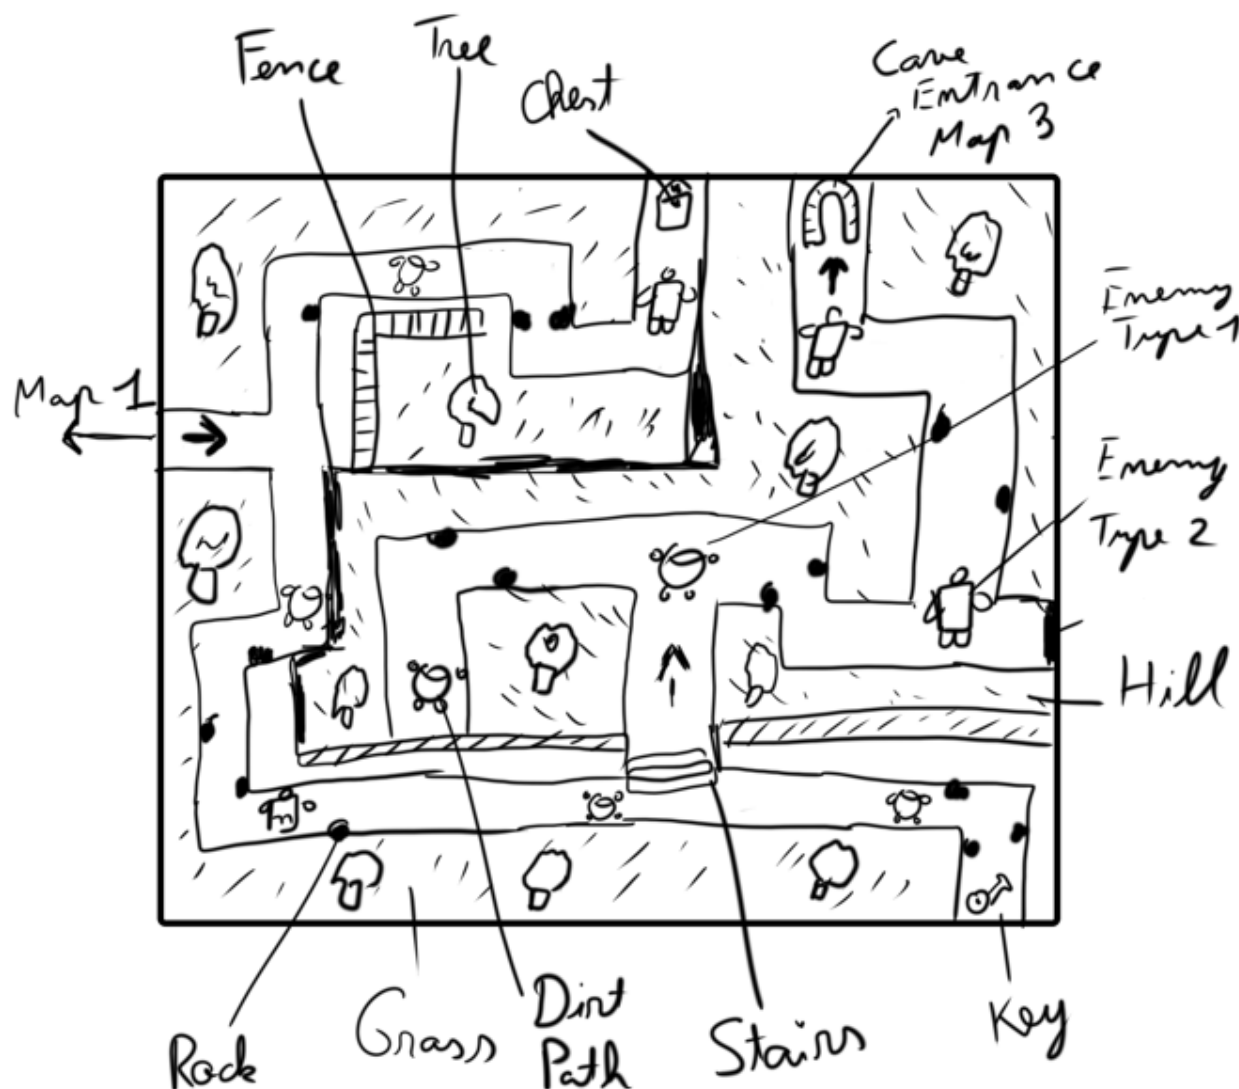 Fence
Tree
Chest
Cave
Entrance
Map 3
Enemy
Type 1
Map 1
Enemy
Type 2
Hill
Rock
Grass
Dirt
Path
Stairs
Key